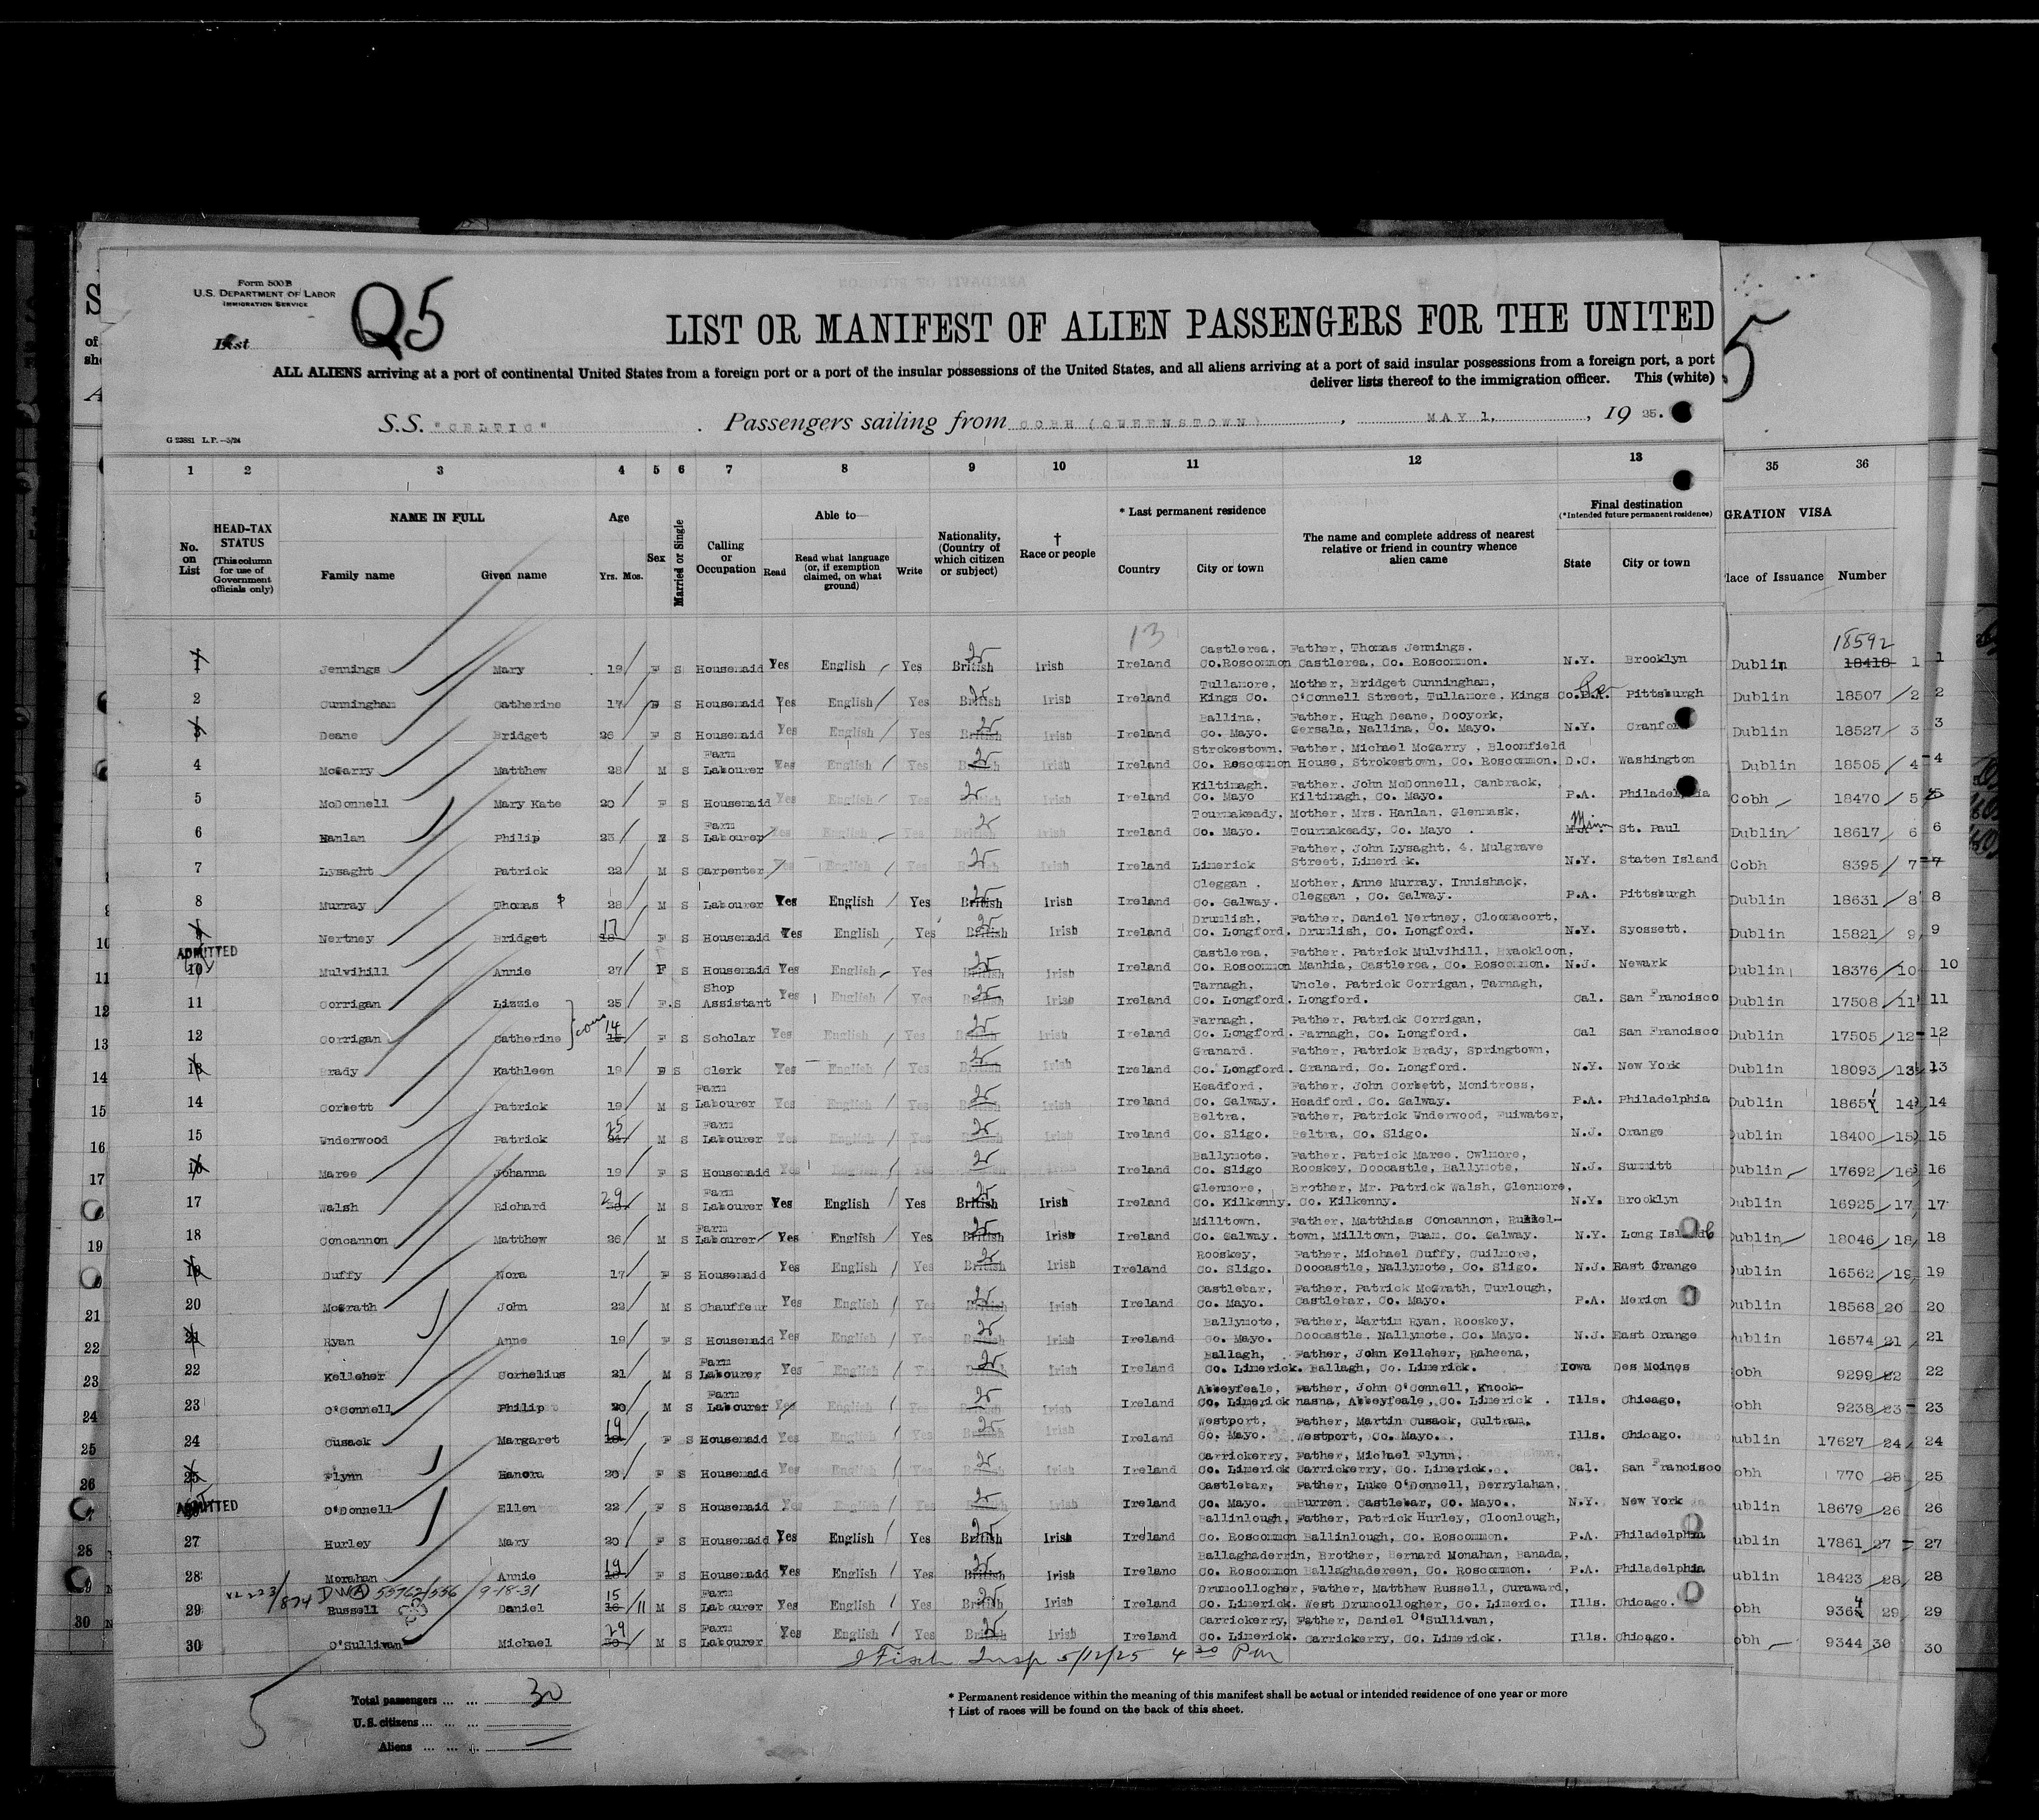 Form 500B
U.S. DEPARTMENT OF LABOR
IMMIGRATION SERVICE
List
Q5
LIST OR MANIFEST OF ALIEN PASSENGERS FOR THE UNITED
5
ALL ALIENS arriving at a port of continental United States from a foreign port or a port of the insular possessions of the United States, and all aliens arriving at a port of said insular possessions from a foreign port, a port
deliver lists thereof to the immigration officer. This (white)
S.S. "CELTIC" . Passengers sailing from COBH (QUEENSTOWN) , MAY 1, , 19 25.
G 23881 L.P.—5/24
1 2 3 4 5 6 7 8 9 10 11 12 13 35 36
No. on List
HEAD-TAX STATUS (This column for use of Government officials only)
NAME IN FULL
Family name Given name
Age Yrs. Mos.
Sex
Married or Single
Calling or Occupation
Able to—
Read Read what language (or, if exemption claimed, on what ground) Write
Nationality, (Country of which citizen or subject)
† Race or people
* Last permanent residence
Country City or town
The name and complete address of nearest relative or friend in country whence alien came
Final destination (*Intended future permanent residence)
State City or town
GRATION VISA
lace of Issuance Number
13
18592
1 Jennings Mary 19 F S Housemaid Yes English Yes British Irish Ireland Castlerea. Co.Roscommon Father, Thomas Jennings. Castlerea, Co. Roscommon. N.Y. Brooklyn Dublin 18418 1 1
2 Cunningham Catherine 17 F S Housemaid Yes English Yes British Irish Ireland Tullamore, Kings Co. Mother, Bridget Cunningham, O'Connell Street, Tullamore, Kings Co. P.A. Pittsburgh Dublin 18507 2 2
3 Deane Bridget 26 F S Housemaid Yes English Yes British Irish Ireland Ballina. Co. Mayo. Father, Hugh Deane, Dooyork, Gersala, Nallina, Co. Mayo. N.Y. Cranford Dublin 18527 3 3
4 McGarry Matthew 28 M S Farm Labourer Yes English Yes British Irish Ireland Strokestown, Co. Roscommon Father, Michael McGarry , Bloomfield House, Strokestown, Co. Roscommon. D.C. Washington Dublin 18505 4 4
5 McDonnell Mary Kate 20 F S Housemaid Yes English Yes British Irish Ireland Kiltimagh. Co. Mayo Father, John McDonnell, Canbrack, Kiltimagh, Co. Mayo. P.A. Philadelphia Cobh 18470 5 5
6 Hanlan Philip 23 M S Farm Labourer Yes English Yes British Irish Ireland Tourmakeady, Co. Mayo. Mother, Mrs. Hanlan, Glenmask, Tourmakeady, Co. Mayo . Minn St. Paul Dublin 18617 6 6
7 Lysaght Patrick 22 M S Carpenter Yes English Yes British Irish Ireland Limerick Father, John Lysaght. 4. Mulgrave Street, Limerick. N.Y. Staten Island Cobh 8395 7 7
8 Murray Thomas P 28 M S Labourer Yes English Yes British Irish Ireland Cleggan . Co. Galway. Mother, Anne Murray, Innishack, Cleggan , Co. Galway. P.A. Pittsburgh Dublin 18631 8 8
9 Nertney Bridget 17 18 F S Housemaid Yes English Yes British Irish Ireland Drumlish, Co. Longford. Father, Daniel Nertney, Cloomacort, Drumlish, Co. Longford. N.Y. Syossett. Dublin 15821 9 9
ADMITTED
10 Mulvihill Annie 27 F S Housemaid Yes English Yes British Irish Ireland Castlerea, Co. Roscommon Father, Patrick Mulvihill, Brackloon, Manhia, Castlerea, Co. Roscommon. N.J. Newark Dublin 18376 10 10
11 Corrigan Lizzie 25 F.S Shop Assistant Yes English Yes British Irish Ireland Tarnagh, Co. Longford. Uncle, Patrick Corrigan, Tarnagh, Longford. Cal. San Francisco Dublin 17508 11 11
12 Corrigan Catherine 14 F S Scholar Yes English Yes British Irish Ireland Farnagh, Co. Longford. Father, Patrick Corrigan, Farnagh, Co. Longford. Cal San Francisco Dublin 17505 12 12
13 Brady Kathleen 19 F S Clerk Yes English Yes British Irish Ireland Granard. Co. Longford. Father, Patrick Brady, Springtown, Granard, Co. Longford. N.Y. New York Dublin 18093 13 13
14 Corbett Patrick 19 M S Farm Labourer Yes English Yes British Irish Ireland Headford, Co. Galway. Father, John Corbett, Monitross, Headford. Co. Galway. P.A. Philadelphia Dublin 1865 14 14
15 Underwood Patrick 25 M S Farm Labourer Yes English Yes British Irish Ireland Beltra. Co. Sligo. Father, Patrick Underwood, Fuiwater, Beltra, Co. Sligo. N.J. Orange Dublin 18400 15 15
16 Maree Johanna 19 F S Housemaid Yes English Yes British Irish Ireland Ballymote. Co. Sligo Father, Patrick Maree. Cwlmore, Rooskey, Doocastle, Ballymote, N.J. Summitt Dublin 17692 16 16
17 Walsh Richard 29 M S Farm Labourer Yes English Yes British Irish Ireland Glenmore, Co. Kilkenny. Brother, Mr. Patrick Walsh, Glenmore, Co. Kilkenny. N.Y. Brooklyn Dublin 16925 17 17
18 Concannon Matthew 26 M S Farm Labourer Yes English Yes British Irish Ireland Milltown. Co. Galway. Father, Matthias Concannon, town, Milltown, Tuam. Co. Galway. N.Y. Long Island Dublin 18046 18 18
19 Duffy Nora 17 F S Housemaid Yes English Yes British Irish Ireland Rooskey, Co. Sligo. Father, Michael Duffy, Cuilmore, Doocastle, Nallymote, Co. Sligo. N.J. East Orange Dublin 16562 19 19
20 McGrath John 22 M S Chauffeur Yes English Yes British Irish Ireland Castlebar, Co. Mayo. Father, Patrick McGrath, Turlough, Castlebar, Co. Mayo. P.A. Merion Dublin 18568 20 20
21 Ryan Anne 19 F S Housemaid Yes English Yes British Irish Ireland Ballymote, Co. Mayo. Father, Martin Ryan, Rooskey. Doocastle, Nallymote, Co. Mayo. N.J. East Orange ublin 16574 21 21
22 Kelleher Cornelius 21 M S Farm Labourer Yes English Yes British Irish Ireland Ballagh, Co. Limerick. Father, John Kelleher, Raheena, Ballagh, Co. Limerick. Iowa Des Moines obh 9299 22 22
23 O'Connell Philip 20 M S Farm Labourer Yes English Yes British Irish Ireland Abbeyfeale, Co. Limerick Father, John O'Connell, Knock-nasna, Abbeyfeale, Co. Limerick . Ills. Chicago. obh 9238 23 23
24 Cusack Margaret 19 F S Housemaid Yes English Yes British Irish Ireland Westport, Co. Mayo. Father, Martin Cusack, Cultram, Westport, Co. Mayo.. Ills. Chicago. ublin 17627 24 24
25 Flynn Hanora 20 F S Housemaid Yes English Yes British Irish Ireland Carrickerry, Co. Limerick Father, Michael Flynn, Carrickerry, Co. Limerick.. Cal. San Francisco obh 770 25 25
ADMITTED
O'Donnell Ellen 22 F S Housemaid Yes English Yes British Irish Ireland Castlebar, Co. Mayo. Father, Luke O'Donnell, Derrylahan, Burren. Castlebar, Co. Mayo.. N.Y. New York ublin 18679 26 26
27 Hurley Mary 20 F S Housemaid Yes English Yes British Irish Ireland Ballinlough, Co. Roscommon Father, Patrick Hurley, Cloonlough, Ballinlough, Co. Roscommon. P.A. Philadelphia ublin 17861 27 27
28 Morahan Annie 19 F S Housemaid Yes English Yes British Irish Ireland Ballaghaderrin, Co. Roscommon Brother, Bernard Monahan, Banada, Ballaghadereen, Co. Roscommon. P.A. Philadelphia ublin 18423 28 28
874 DW(A) 55762/556 9-18-31
29 Russell Daniel 15 16 11 M S Farm Labourer Yes English Yes British Irish Ireland Drumcollogher, Co. Limerick. Father, Matthew Russell, Curaward, West Drumcollogher, Co. Limeric. Ills. Chicago. obh 9364 29 29
30 O'Sullivan Michael 29 30 M S Farm Labourer Yes English Yes British Irish Ireland Carrickerry, Co. Limerick. Father, Daniel O'Sullivan, Carrickerry, Co. Limerick. Ills. Chicago. obh 9344 30 30
Insp 5/12/25 4 30 Pm
5
Total passengers ... ... 30
U.S. citizens ... ... ...
Aliens ... ... ...
* Permanent residence within the meaning of this manifest shall be actual or intended residence of one year or more
† List of races will be found on the back of this sheet.